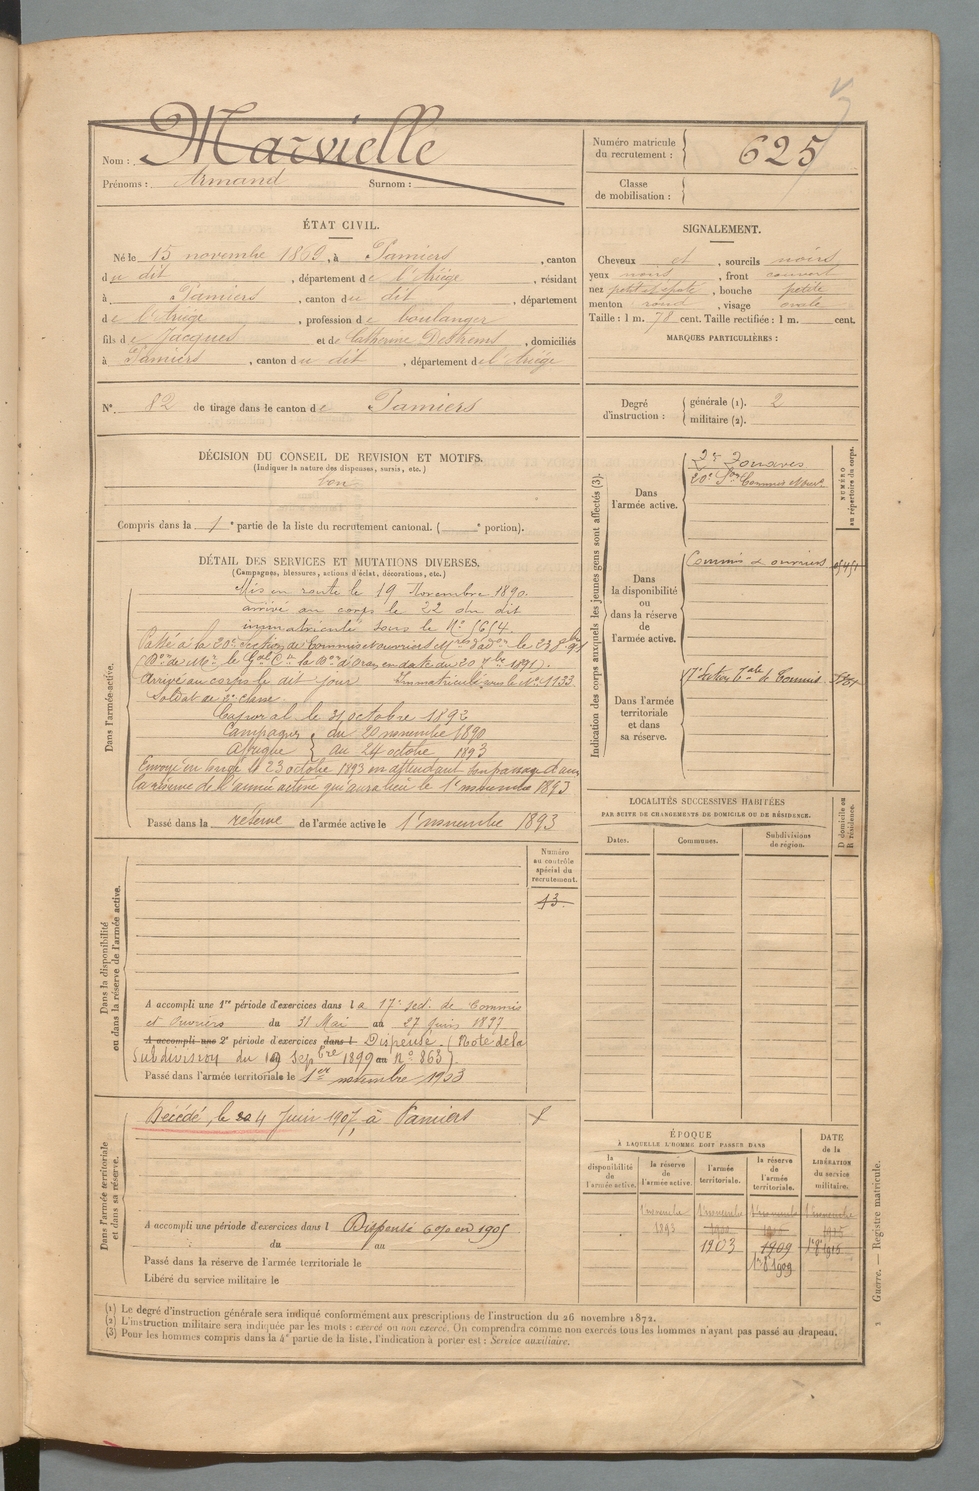 Nom : Marvielle
Prénoms : Armand Surnom :
Numéro matricule du recrutement : 625
Classe de mobilisation :
ÉTAT CIVIL.
Né le 15 novembre 1869, à Pamiers, canton
du dit, département de l'Ariège, résidant
à Pamiers, canton du dit, département
de l'Ariège, profession de boulanger
fils de Jacques et de Catherine, domiciliés
à Pamiers, canton du dit, département de l'Ariège
N° 82 de tirage dans le canton de Pamiers
SIGNALEMENT.
Cheveux et, sourcils noirs
yeux noirs, front couvert
nez petit et épaté, bouche petite
menton rond, visage ovale
Taille : 1 m. 78 cent. Taille rectifiée : 1 m. cent.
MARQUES PARTICULIÈRES :
Degré d'instruction : générale (1). 2
militaire (2).
DÉCISION DU CONSEIL DE REVISION ET MOTIFS.
(Indiquer la nature des dispenses, sursis, etc.)
bon
Compris dans la 1e partie de la liste du recrutement cantonal. ( e portion).
DÉTAIL DES SERVICES ET MUTATIONS DIVERSES.
(Campagnes, blessures, actions d'éclat, décorations, etc.)
Dans l'armée active.
Mis en route le 19 Novembre 1890.
arrivé au corps le 22 du dit
immatriculé sous le N° 1614.
Passé à la 20e section de Commis et ouvriers le 23 8bre 91
en date du 20 7bre 1891).
Arrivé au corps le dit jour Immatriculé sous le N° 1133
Soldat de 2e classe
Caporal le 31 octobre 1892
Campagnes du 20 novembre 1890
Afrique au 24 octobre 1893
Envoyé en congé le 23 octobre 1893 en attendant son passage dans
la réserve de l'armée active qui aura lieu le 1er novembre 1893
Passé dans la réserve de l'armée active le 1er novembre 1893
Indication des corps auxquels les jeunes gens sont affectés (3).
NUMÉRO au répertoire du corps.
Dans l'armée active.
2e Zouaves
20e Son Commis et ouvr.
Dans la disponibilité ou dans la réserve de l'armée active.
Commis et ouvriers
Dans l'armée territoriale et dans sa réserve.
17e Section tale de Commis
LOCALITÉS SUCCESSIVES HABITÉES
PAR SUITE DE CHANGEMENTS DE DOMICILE OU DE RÉSIDENCE.
Dates. Communes. Subdivisions de région.
D domicile ou R résidence.
Dans la disponibilité ou dans la réserve de l'armée active.
Numéro au contrôle spécial du recrutement.
13
A accompli une 1re période d'exercices dans la 17e sect. de Commis
et Ouvriers du 31 Mai au 27 Juin 1897
A accompli une 2e période d'exercices dans l Dispensé. (Note de la
Subdivision du 19 Sepbre 1899 au N° 863).
Passé dans l'armée territoriale le 1er novembre 1903
Dans l'armée territoriale et dans sa réserve.
Décédé, le 4 Juin 1907, à Pamiers
A accompli une période d'exercices dans l Dispensé 6% en 1905
du au
Passé dans la réserve de l'armée territoriale le
Libéré du service militaire le
ÉPOQUE
À LAQUELLE L'HOMME DOIT PASSER DANS
la disponibilité de l'armée active.
la réserve de l'armée active.
l'armée territoriale.
la réserve de l'armée territoriale.
DATE de la LIBÉRATION du service militaire.
1 novembre 1 novembre 1 novembre 1 novembre
1893
1903 1909
1er 8bre 1909
Guerre. — Registre matricule.
(1) Le degré d'instruction générale sera indiqué conformément aux prescriptions de l'instruction du 26 novembre 1872.
(2) L'instruction militaire sera indiquée par les mots : exercé ou non exercé. On comprendra comme non exercés tous les hommes n'ayant pas passé au drapeau.
(3) Pour les hommes compris dans la 4e partie de la liste, l'indication à porter est : Service auxiliaire.